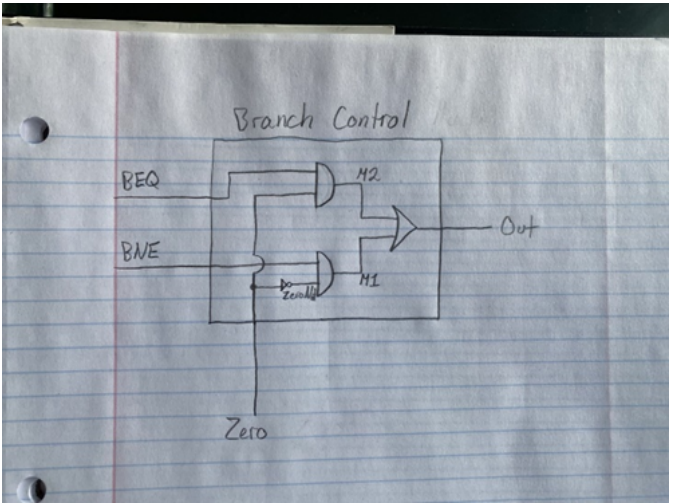 Branch Control
BEQ
M2
Out
BNE
M1
Zero